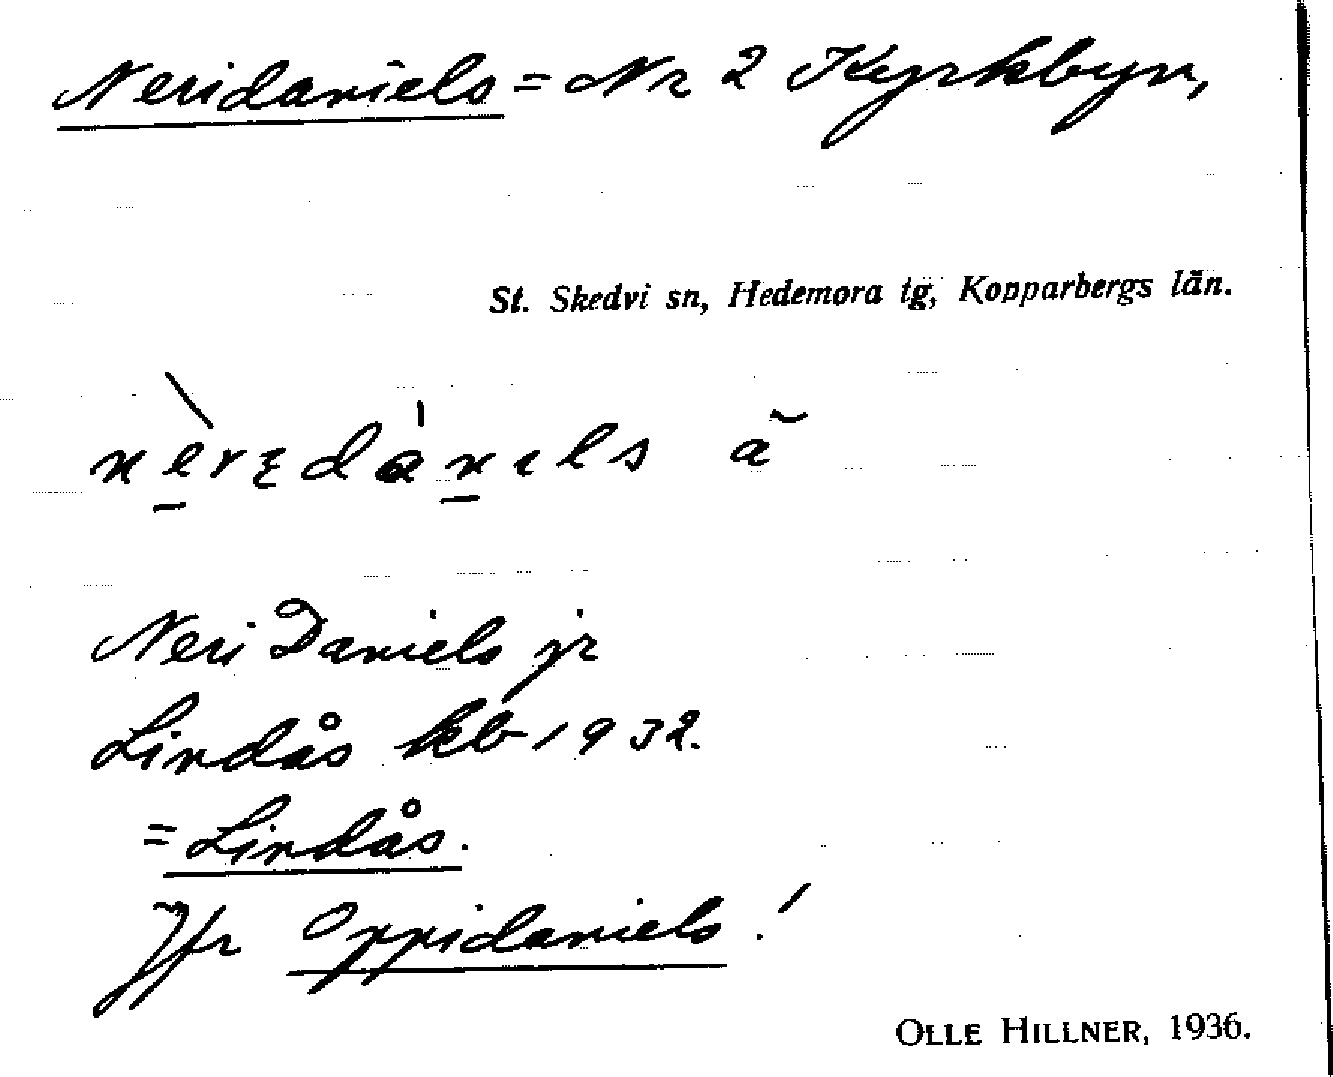 Neridaniels = Nr 2 Kyrkbyn,
St. Skedvi sn, Hedemora tg, Kopparbergs län.
Neri Daniels jr
Lindås kb 1932.
= Lindås.
Jfr Oppidaniels!
OLLE HILLNER, 1936.